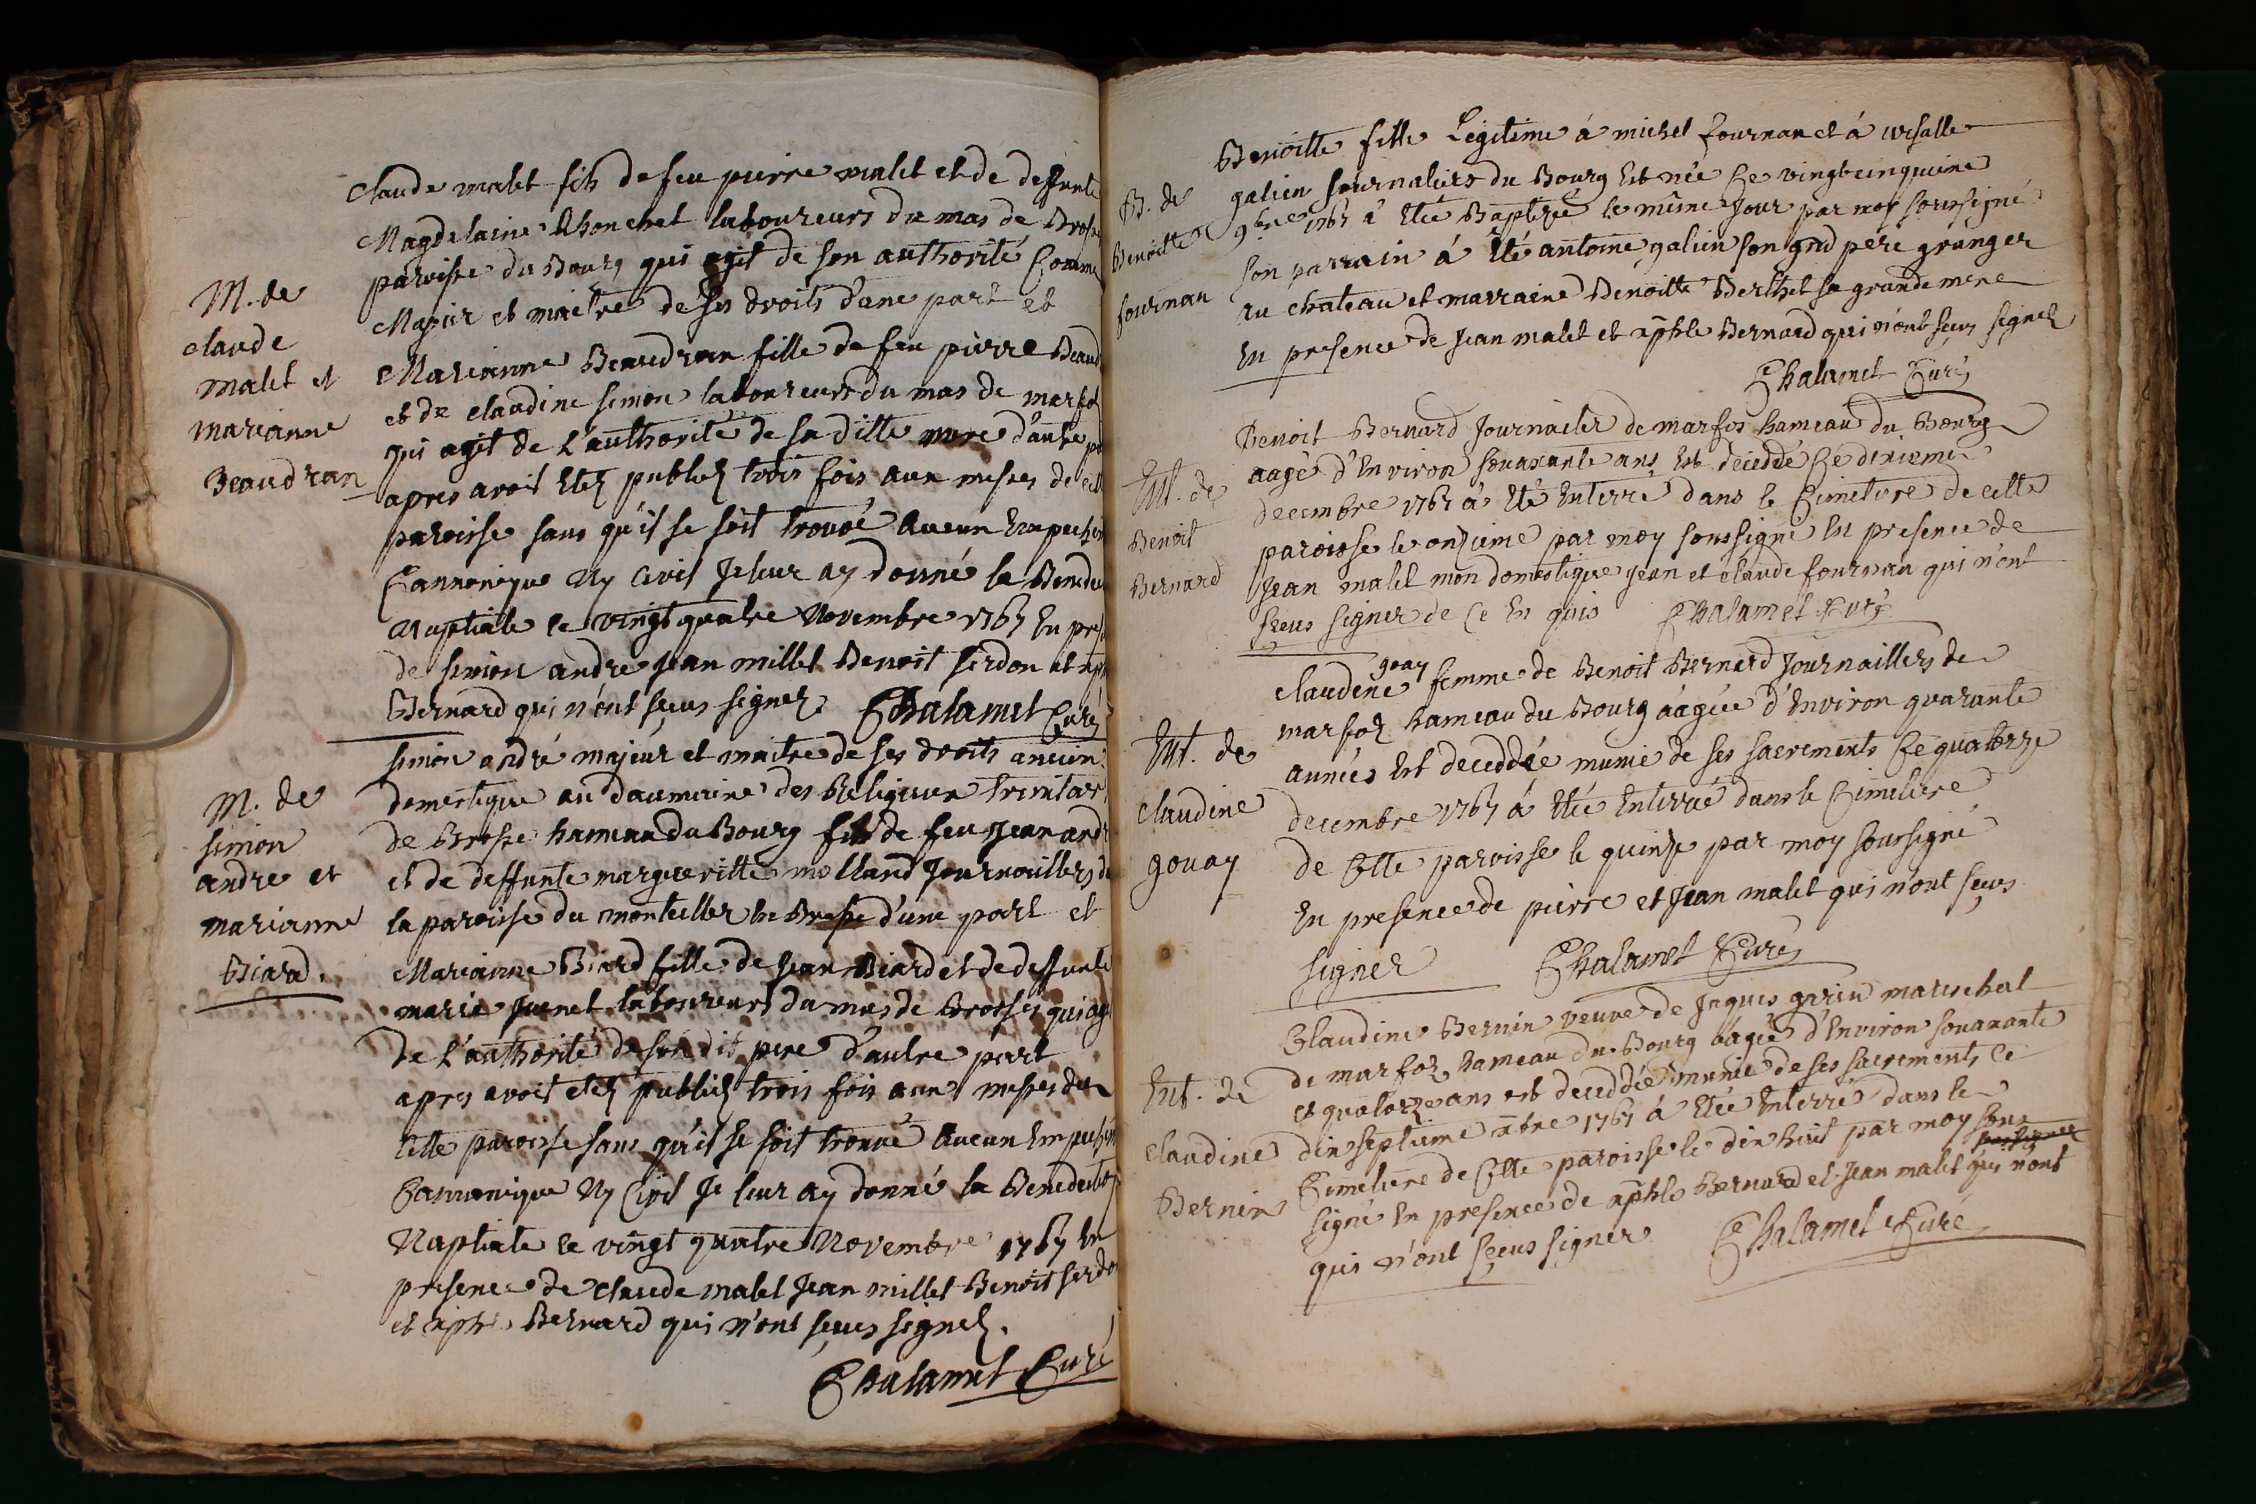 M. de
claude
malet et
marianne
Beaudran
claude malet fils de feu pierre malet et de deffunte
Magdelaine Rhonchet laboureurs du mas de Brosse
paroisse du Bourg qui agit de son authorité Comme
Majeur et maitre de ses droits d'une part et
Marianne Beaudran fille de feu pierre Beaud
et de claudine simon laboureurs du mas de marfos
qui agit de L'authorité de sa ditte mere d'autre pa
apres avoit Etez publiez trois fois aux messes de cett
paroisse sans qu'il se soit trouvé Aucun Empeschem
Cannonique Ny Civil Je leur ay donné la Benedict
Nuptiale ce vingt quatre Novembre 1767 En pres
de simon andre Jean millet Benoit serdon et xph
Bernard qui n'ont sçeus signer. Chalamet Curé
M. de
simon
andre et
marianne
Biard.
simon andré majeur et maitre de ses droits ancien
domestique au daumaine des Religieux trinitair
de Brosse hameau du Bourg fils de feu Jean andr
et de deffunte margueritte molland Journailliers de
la paroisse du montceller en Bresse d'une part et
Marianne Biard fille de Jean Biard et de deffunte
marie Junet laboureurs du mas de Brosses qui agi
de L'authorité de son dit pere d'autre part
apres avoit etez publiez trois fois aux messes de
cette paroisse sans qu'il se soit trouvé Aucun Empeschem
Cannonique Ny Civil Je leur ay donné la Benedicti
Nuptiale ce vingt quatre Novembre 1767 En
presence de claude malet Jean millet Benoit serdo
et xph Bernard qui n'ont sçeus signez.
Chalamet Curé
B. de
Benoitte
fournan
Benoitte fille Legitime á michel fournan et á ursalle
galien Journaliers du Bourg Est née Ce vingtcinquieme
9bre 1767 á Etée Baptizée le même Jour par moy soussigné
son parrain á Eté antoine galien son gnd pere granger
au chateau et marraine Benoitte Berthet sa grande mere
En presence de Jean malet et xphle Bernard qui n'ont sçeus signez
Chalamet Curé
Ent. de
Benoit
Bernard
Benoit Bernard Journailer de marfos hameau du Bourg
aagé d'Environ souaxante ans Est deceddé Ce dixieme
decembre 1767 á Eté Enterré dans le Cimetiere de cette
paroisse le onzieme par moy soussigné En presence de
Jean malet mon domestique Jean et claude fournan qui n'ont
sçeus signer de Ce En quis Chalamet Curé
Ent. de
claudine
gouay
claudine gouay femme de Benoit Bernard Journailliers de
marfoz hameau du Bourg áagée d'Environ quarante
années Est deceddée munie de ses sacrements Ce quatorze
decembre 1767 á Etée Enterrée dans le Cimetiere
de Cette paroisse le quinze par moy soussigné
En presence de pierre et Jean malet qui n'ont sçeus
signer Chalamet Curé
Ent. de
claudine
Bernin
Claudine Bernin veuve de Jaques gorin mareschal
de marfoz hameau du Bourg áagée d'Environ souaxante
et quatorze ans est deceddée munie de ses sacrements Ce
dixseptieme xbre 1767 á Etée Enterré dans le
Cimetiere de Cette paroisse le dixhuit par moy sous
signé En presence de xphle Bernard et Jean malet qui n'ont
qui n'ont sçeus signer Chalamet Curé